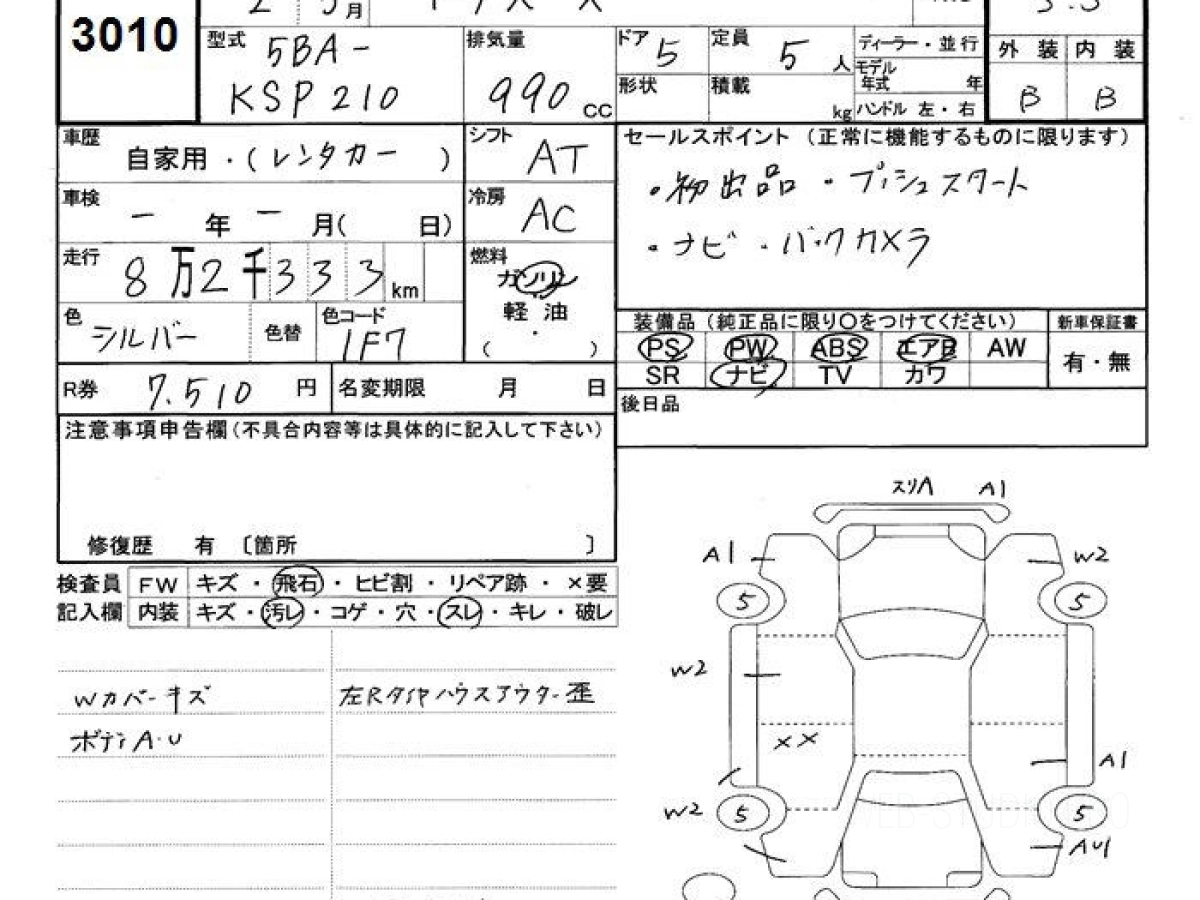 3010
月
型式 5BA-
KSP210
排気量
990 cc
ドア 5
定員 5人
形状
積載 kg
ディーラー・並行
モデル年式 年
ハンドル 左・右
外装 内装
B B
車歴 自家用・(レンタカー)
シフト AT
車検 ー年ー月( 日)
冷房 AC
走行 8万2千333km
燃料 ガソリン
軽油
・
( )
色 シルバー 色替
色コード 1F7
セールスポイント (正常に機能するものに限ります)
・初出品 ・プッシュスタート
・ナビ ・バックカメラ
装備品 (純正品に限り○をつけてください) 新車保証書
PS PW ABS エアB AW
SR ナビ TV カワ
有・無
R券 7,510 円 名変期限 月 日
後日品
注意事項申告欄(不具合内容等は具体的に記入して下さい)
修復歴 有 〔箇所 〕
検査員 FW キズ・飛石・ヒビ割・リペア跡・×要
記入欄 内装 キズ・汚レ・コゲ・穴・スレ・キレ・破レ
Wカバーキズ
左Rタイヤハウスアウター歪
ボディA・U
スリA A1
A1 W2
5 5
W2
XX
A1
W2 5 5
AU1